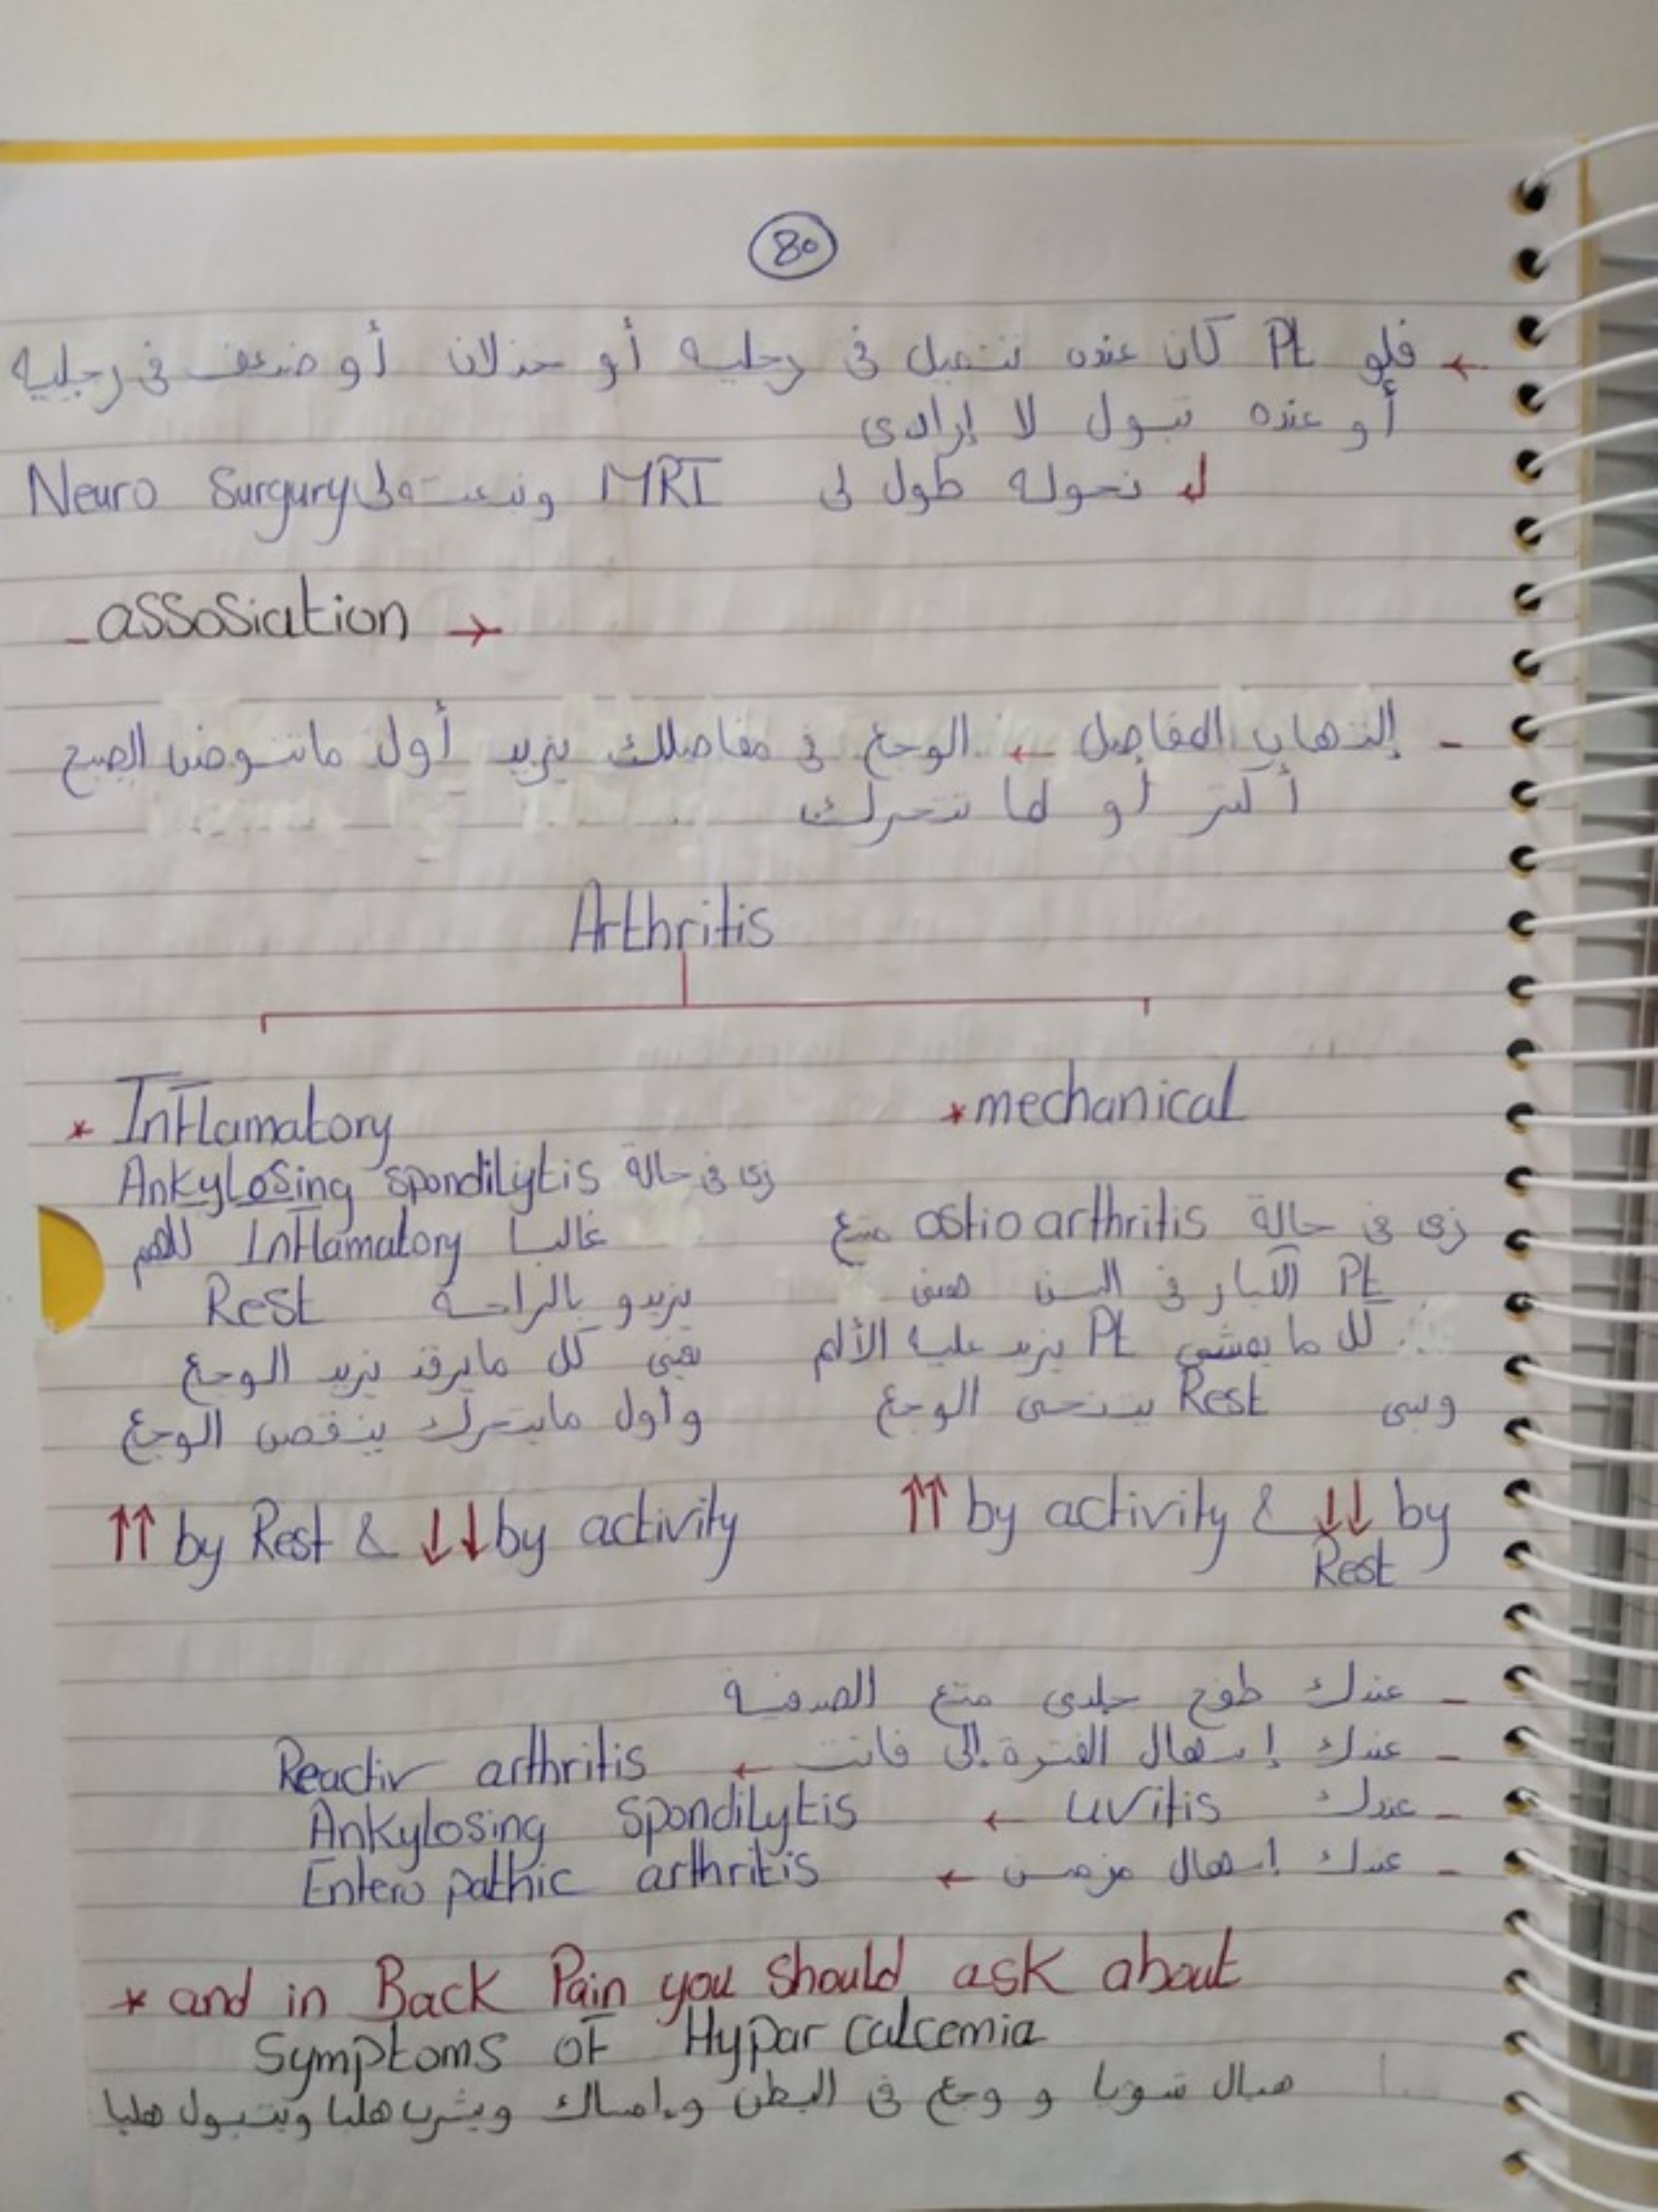 80
← فلو Pt كان عنده تنميل في رجليه أو خذلان أو ضعف في رجليه
أو عنده تبول لا إرادى
ل نحوله طول لى MRI ونبعته لى Neuro Surgury
- assosiation →
- إلتهاب المفاصل ← الوجع في مفاصلك يزيد أول ماتنوض الصبح
أكتر أو لما تتحرك
Arthritis
* Inflamatory
Ankylosing spondilytis زى في حالة
غالبا Inflamatory
يزيدو بالراحة Rest
يعني كل مايرقد يزيد الوجع
وأول مايتحرك ينقص الوجع
↑↑ by Rest & ↓↓ by activity
* mechanical
زى في حالة ostio arthritis متع
Pt الكبار في السن
كل ما يمشي Pt يزيد عليه الألم
Rest يتنحى الوجع
↑↑ by activity & ↓↓ by
Rest
- عندك طفح جلدى متع الصدفية
- عندك إسهال الفترة إلى فاتت ← Reactiv arthritis
- عندك uvitis ← Ankylosing spondilytis
- عندك إسهال مزمن ← Entero pathic arthritis
* and in Back Pain you should ask about
Symptoms of Hypar calcemia
شويا و وجع في البطن وإمساك ويشرب هلبا ويتبول هلبا